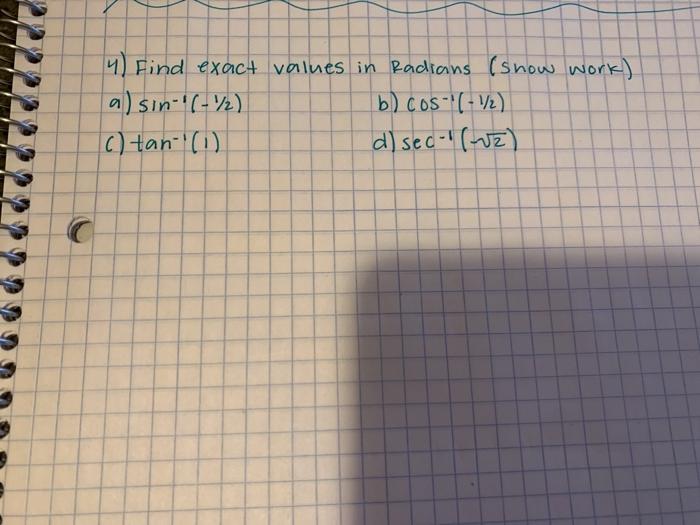 4) Find exact values in Radians (show work)
a) sin⁻¹(-1/2) b) cos⁻¹(-1/2)
c) tan⁻¹(1) d) sec⁻¹(-√2)